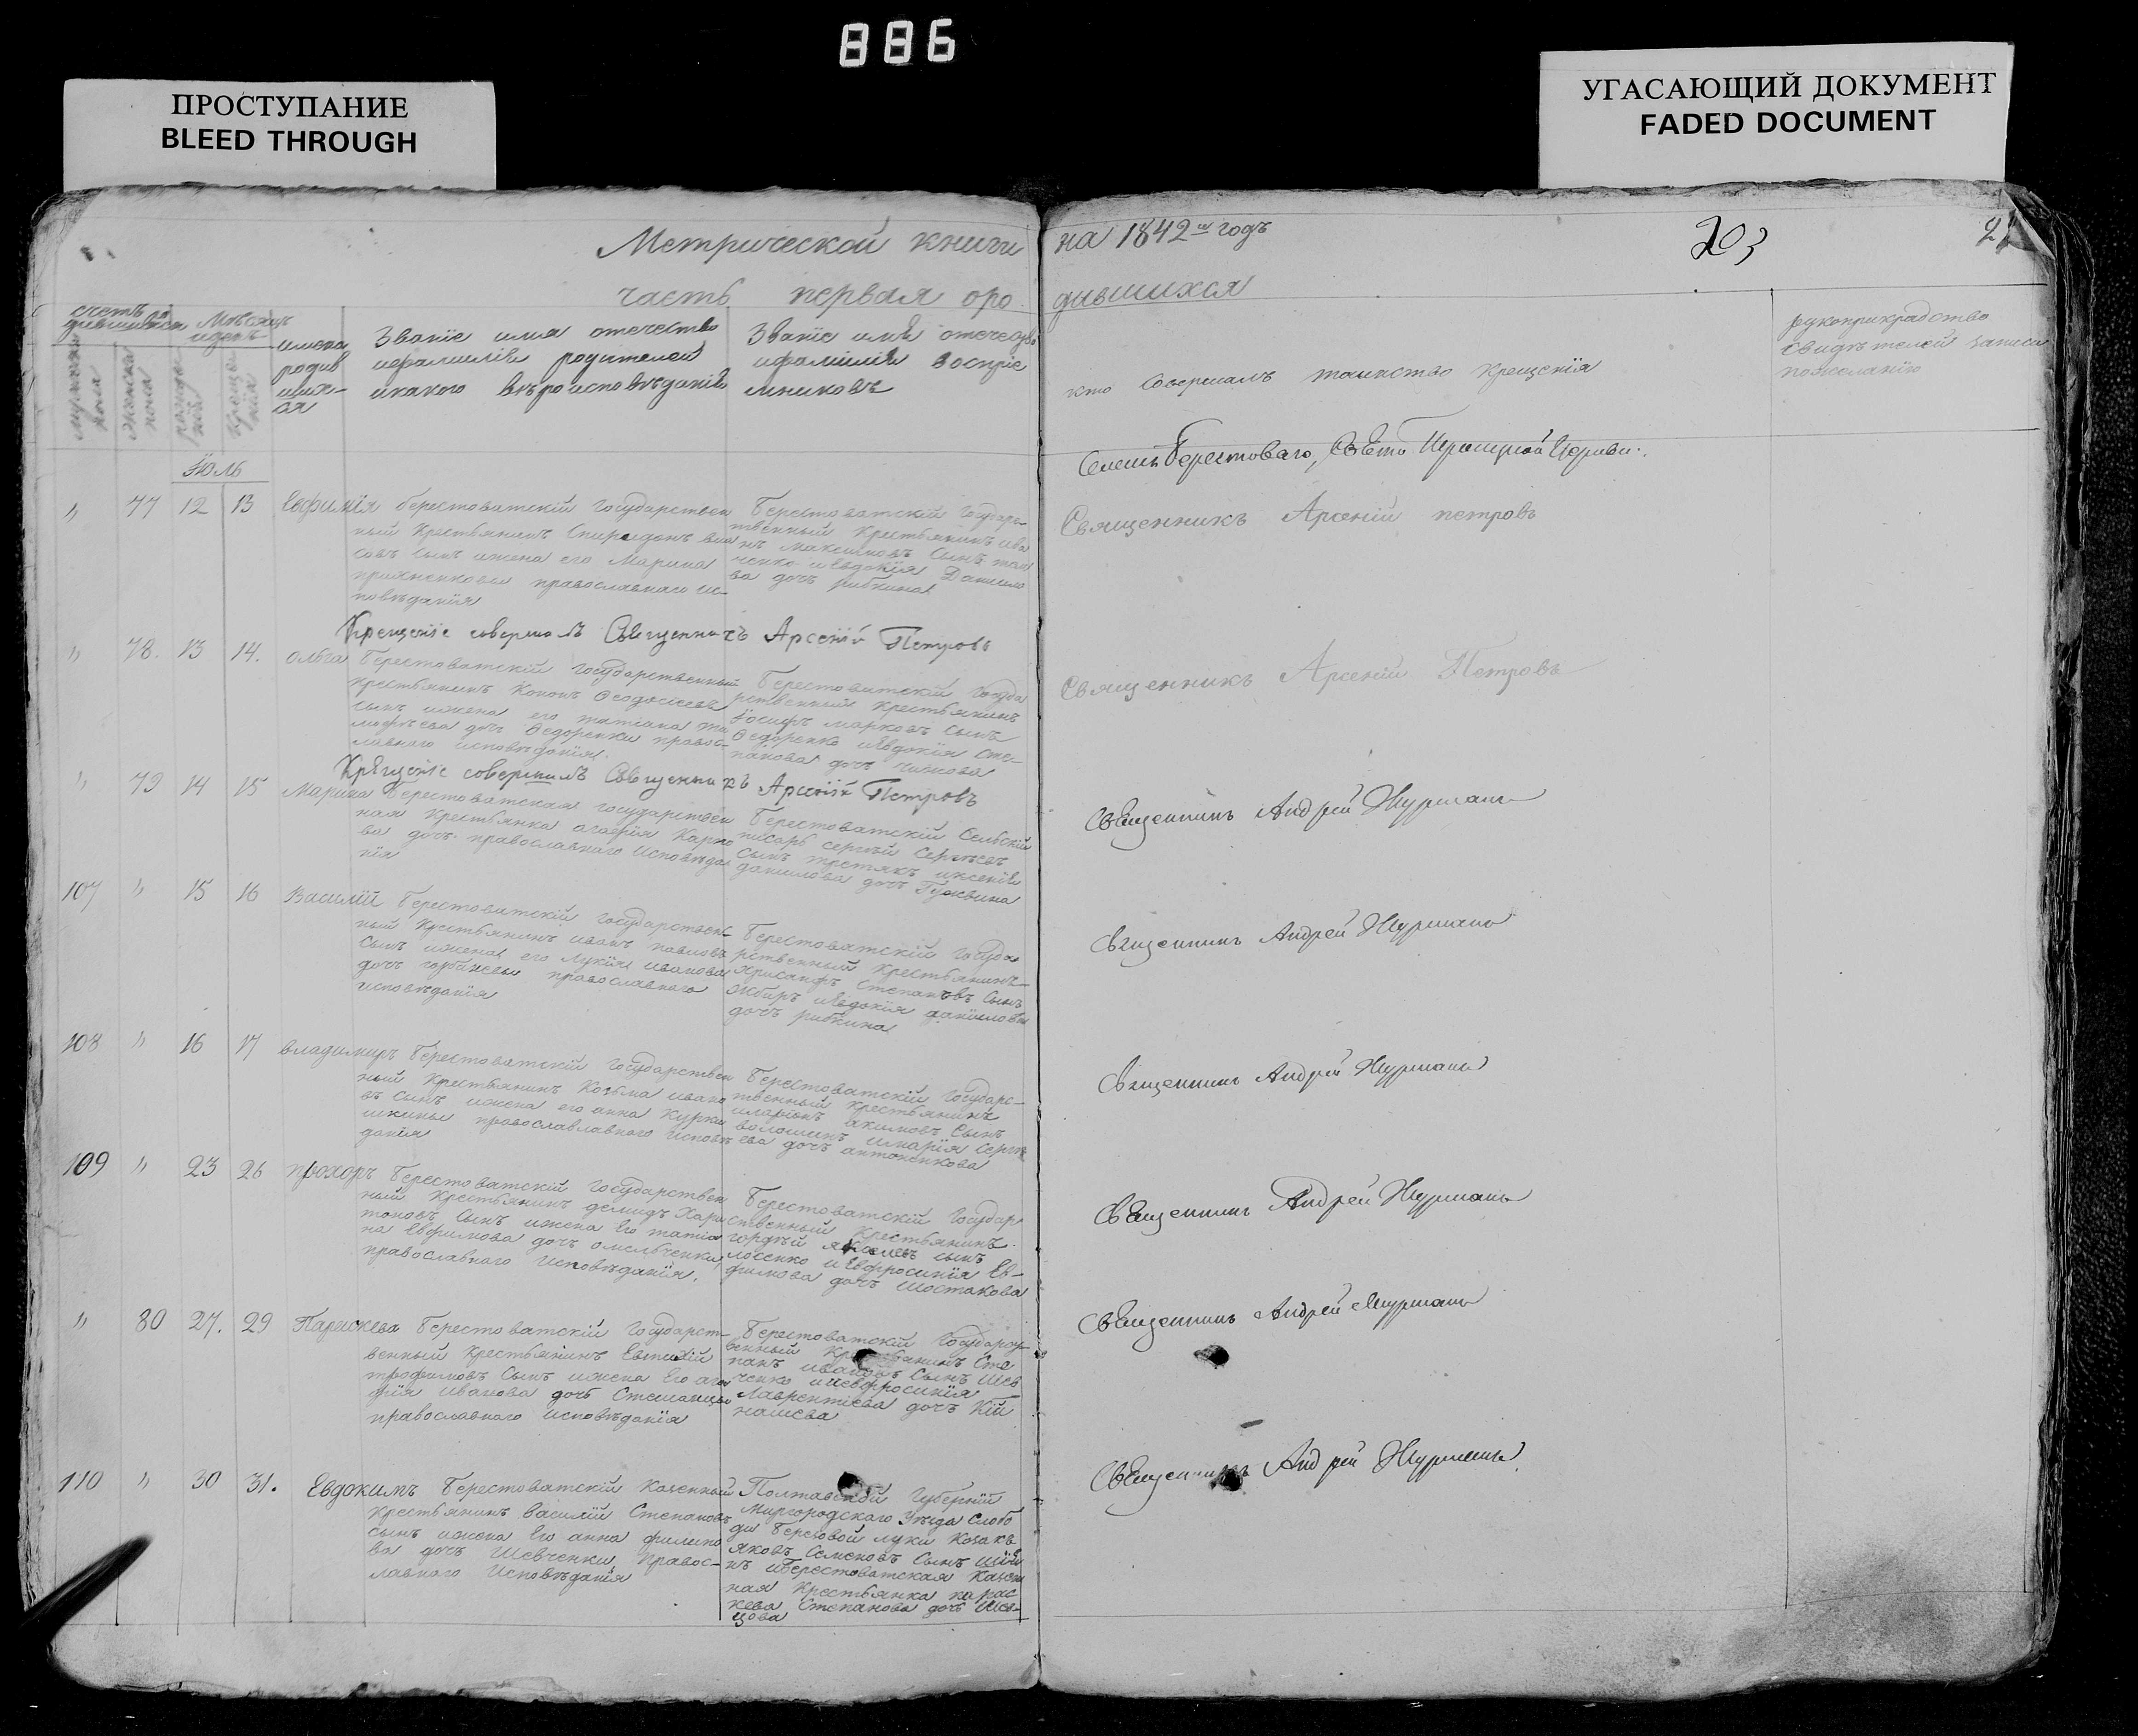 886
ПРОСТУПАНИЕ
BLEED THROUGH
УГАСАЮЩИЙ ДОКУМЕНТ
FADED DOCUMENT
Метрической книги на 1842 годъ
203
часть первая оро дившихся
имена
родив
ших-
ся
Званіе имя отечество
ифамилія родителей
икакого вѣроисповѣданія
Званіе имя отечество
ифамилія воспріе
мниковъ
кто совершалъ таинство крещенія
рукоприкладство
свидѣтелей записи
пожеланію
Іюль
77 12 13 Евфимія
берестоватскій государствен
ный крестьянинъ Спиридонъ вла
совъ сынъ ижена его Марина
православнаго ис-
повѣданія
Берестоватскій государс-
твенный крестьянинъ ива
нъ Максимовъ сынъ
ченко иевдокія Данило
ва дочь рибкина
Священникъ Арсеній петровъ
Крещеніе совершалъ Священникъ Арсеній Петровъ
78. 13 14. Ольга
Берестоватскій государственный
крестьянинъ Кононъ Феодосіевъ
сынъ ижена его татіана ти
мофѣева дочь Федоренки правос-
лавнаго исповѣданія.
Берестоватскій госуда
рственный крестьянинъ
Іосифъ марковъ сынъ
Федоренко иевдокія сте-
панова дочь
Священникъ Арсеній Петровъ
Крещеніе совершилъ Священникъ Арсеній Петровъ
79 14 15 Марина
Берестоватская государствен
ная крестьянка агафія Карпо
ва дочь православнаго исповѣда
нія
Берестоватскій Сельскій
писарь сергѣй Сергѣевъ
сынъ иксенія
данилова дочь
Священникъ Андрей
107 15 16 Василій
Берестоватскій государствен-
ный крестьянинъ иванъ павловъ
сынъ ижена его Лукія иванова
дочь православнаго
исповѣданія
Берестоватскій госуда
рственный крестьянинъ
Степановъ Сынъ
иевдокія данилова
дочь рибкина
Священникъ Андрей
108 16 17 владимиръ
Берестоватскій государствен
ный крестьянинъ Козьма ивано
въ сынъ ижена его анна
православлавнаго исповѣ
данія
Берестоватскій государс-
твенный крестьянинъ
иларіонъ акимовъ Сынъ
волошинъ имарія серге
ева дочь антоненкова
Священникъ Андрей
109 23 26 прохоръ
Берестоватскій государствен
ный крестьянинъ демидъ Хари
тоновъ Сынъ ижена Его татіа
на Евфимова дочь омельченки
православнаго исповѣданія.
Берестоватскій государ
ственный крестьянинъ
гордѣй сынъ
иевфросинія Ев-
фимова дочь шостакова
Священникъ Андрей
80 27. 29 Параскева
Берестоватскій государст-
венный крестьянинъ Евтихій
трофимовъ Сынъ ижена Его ага
фія иванова дочь
православнаго исповѣданія
Берестоватскій государст
венный крестьянинъ Сте
панъ ивановъ Сынъ Шев
ченко иевфросинія
Лаврентіева дочь
Священникъ Андрей
110 30 31. Евдокимъ
Берестоватскій казенный
крестьянинъ василій Степановъ
сынъ ижена Его анна филипо
ва дочь Шевченки правос-
лавнаго исповѣданія
Полтавской губерніи
Миргородскаго уѣзда слобо
ды Березовой луки козакъ
яковъ Семеновъ Сынъ
иберестоватская казен
ная крестьянка парас
кева Степанова дочь Шев-
цова
Священникъ Андрей